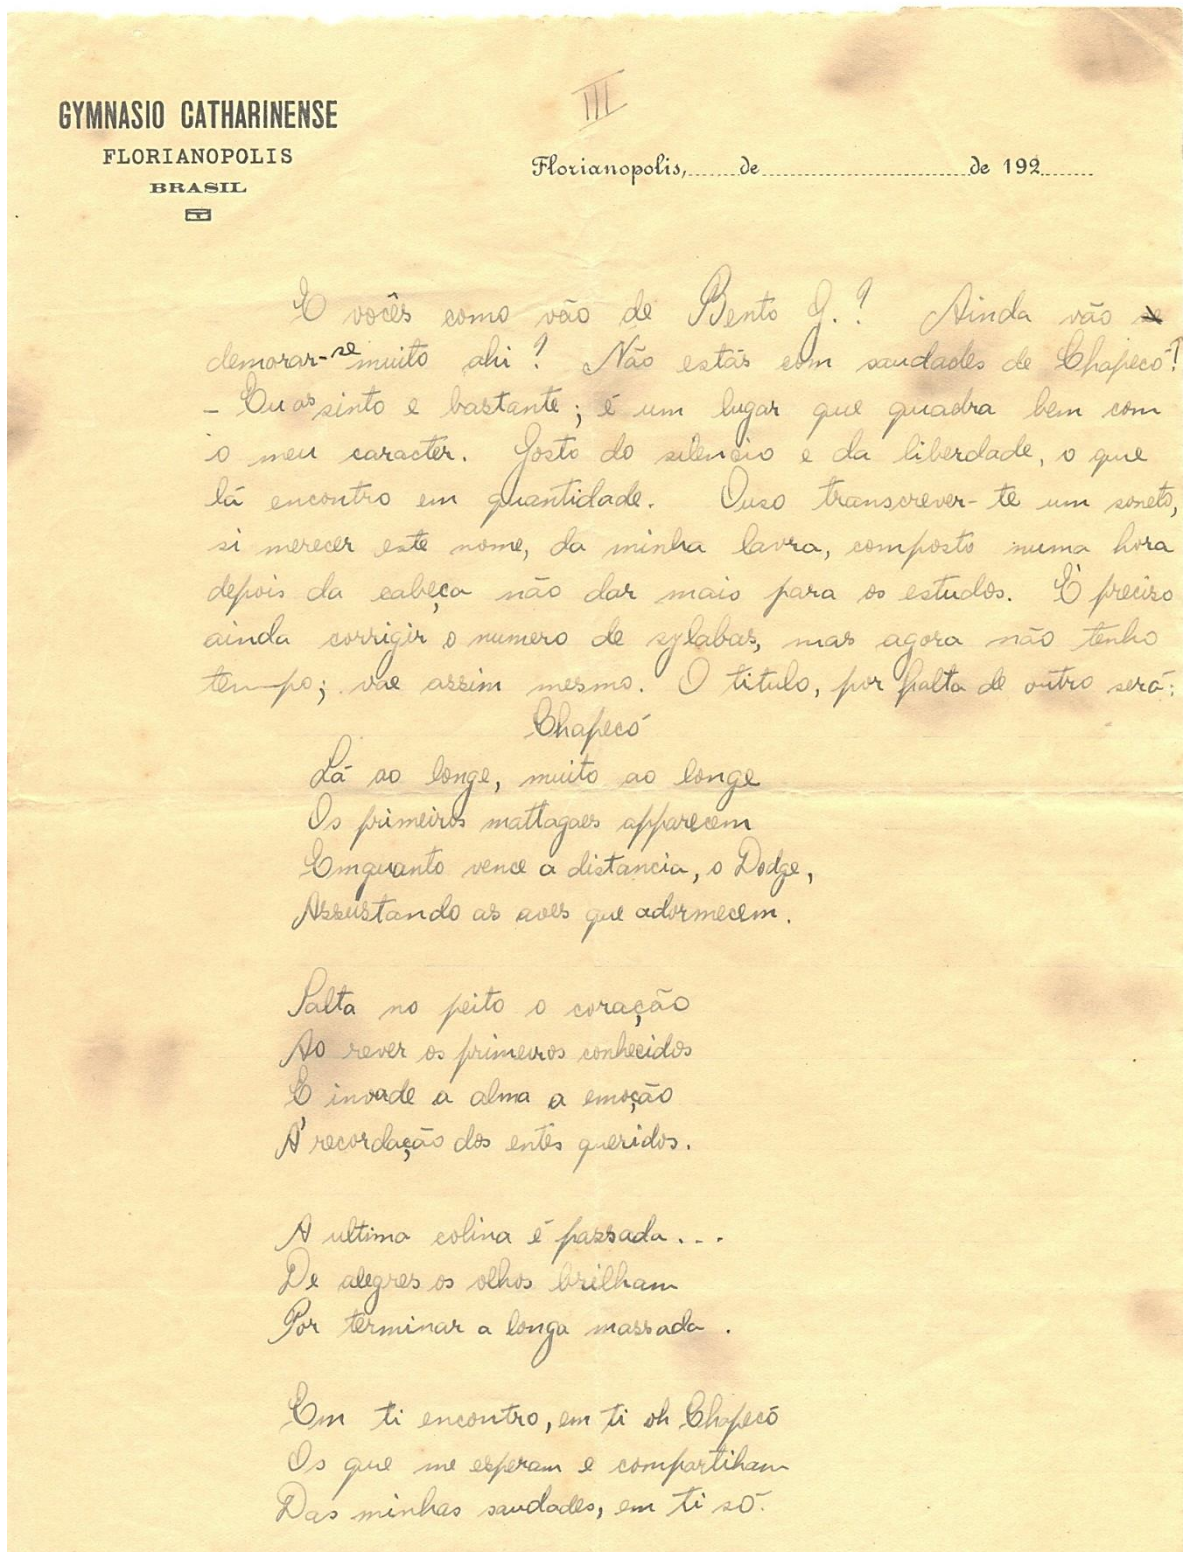 III
GYMNASIO CATHARINENSE
FLORIANOPOLIS
BRASIL
Florianopolis,......de..............................de 192.......
E vocês como vão de Bento G.? Ainda vão
demorar-se muito ahi? Não estás com saudades de Chapecó?
- Eu as sinto e bastante; é um lugar que quadra bem com
o meu caracter. Gosto do silencio e da liberdade, o que
lá encontro em quantidade. Ouso transcrever-te um soneto,
si merecer este nome, da minha lavra, composto numa hora
depois da cabeça não dar mais para os estudos. É preciso
ainda corrigir o numero de sylabas, mas agora não tenho
tempo; vae assim mesmo. O titulo, por falta de outro será:
Chapecó
Lá ao longe, muito ao longe
Os primeiros mattagaes apparecem
Emquanto vence a distancia, o Dodge,
Assustando as aves que adormecem.
Salta no peito o coração
Ao rever os primeiros conhecidos
E invade a alma a emoção
Á recordação dos entes queridos.
A ultima colina é passada...
De alegres os olhos brilham
Por terminar a longa massada.
Em ti encontro, em ti oh Chapecó
Os que me esperam e compartilham
Das minhas saudades, em ti só.